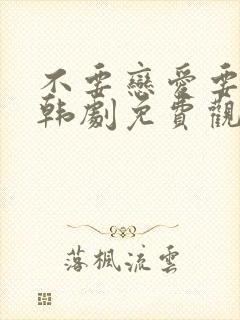 不要戀愛要
韩劇免費觀
落楓流雲